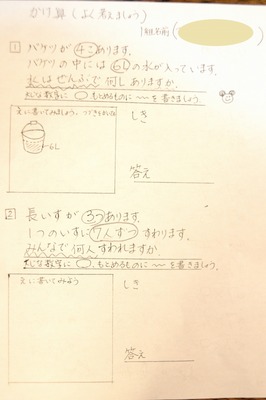 かけ算(よく考えましょう)
名前(
1 バケツが4こあります。
バケツの中には6Lの水が入っています。
水はぜんぶで何Lありますか。
大じな数字に○、もとめるものに〜〜を書きましょう。
えに書いてみましょう。つづきをかいてね
しき
6L
答え
2 長いすが3つあります。
1つのいすに7人ずつすわります。
みんなで何人すわれますか。
大じな数字に○、もとめるものに〜〜を書きましょう。
えに書いてみよう
しき
答え